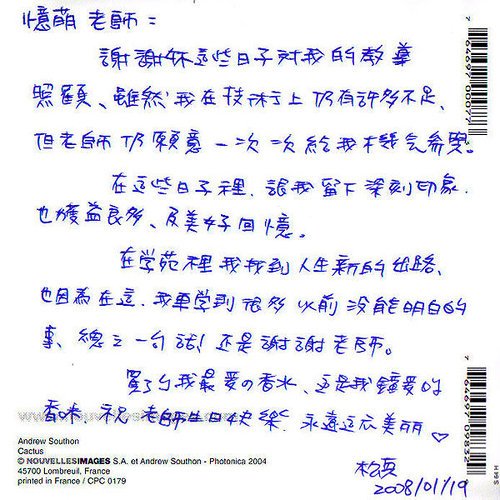 憶萌老師=
謝謝妳這些日子對我的教導
照顧、雖然我在技術上仍有許多不足、
但老師仍願意一次次給我機会学習。
在這些日子裡、讓我留下深刻印象、
也獲益良多、及美好回憶。
在学苑裡我找到人生新的出路、
也因為在這、我車学到很多以前沒能明白的
事、總之一句話!還是謝謝老師。
買了我最愛の香水、這是我鍾愛的
香味、祝老師生日快樂、永遠這広美麗♡
柏真
2008/01/19
Andrew Southon
Cactus
© NOUVELLESIMAGES S.A. et Andrew Southon - Photonica 2004
45700 Lombreuil, France
printed in France / CPC 0179
7 64469 09832